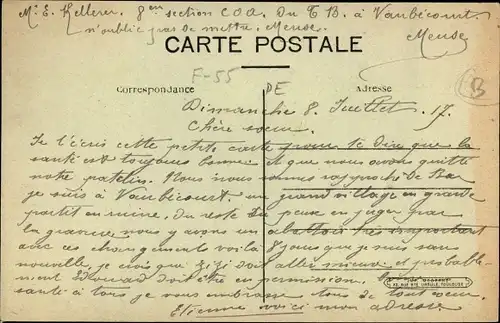 Mr E. Kellerer. 8en section C.O.A. Du T B. à Vaubécourt
n'oublie pas de mettre. Meuse. Meuse
CARTE POSTALE
F-55
DE
B
Correspondance
Adresse
Dimanche 8 Juillet. 17.
Chère soeur.
Je t'écris cette petite carte pour te dire que la
santé est toujours bonne et que nous avons quitté
notre patelin. Nous nous sommes rapproché de Bar
je suis à Vaubécourt. un grand village en grande
partie en ruine. Du reste tu peux en juger par
la gravure nous y avons un abattoir très important
avec ces changements voilà 8 jours que je suis sans
nouvelle, je crois que Zizi doit aller mieux et probable-
ment Edouard doit être en permission.
santé à tous je vous embrasse tous de tout coeur.
Etienne voici mon adresse